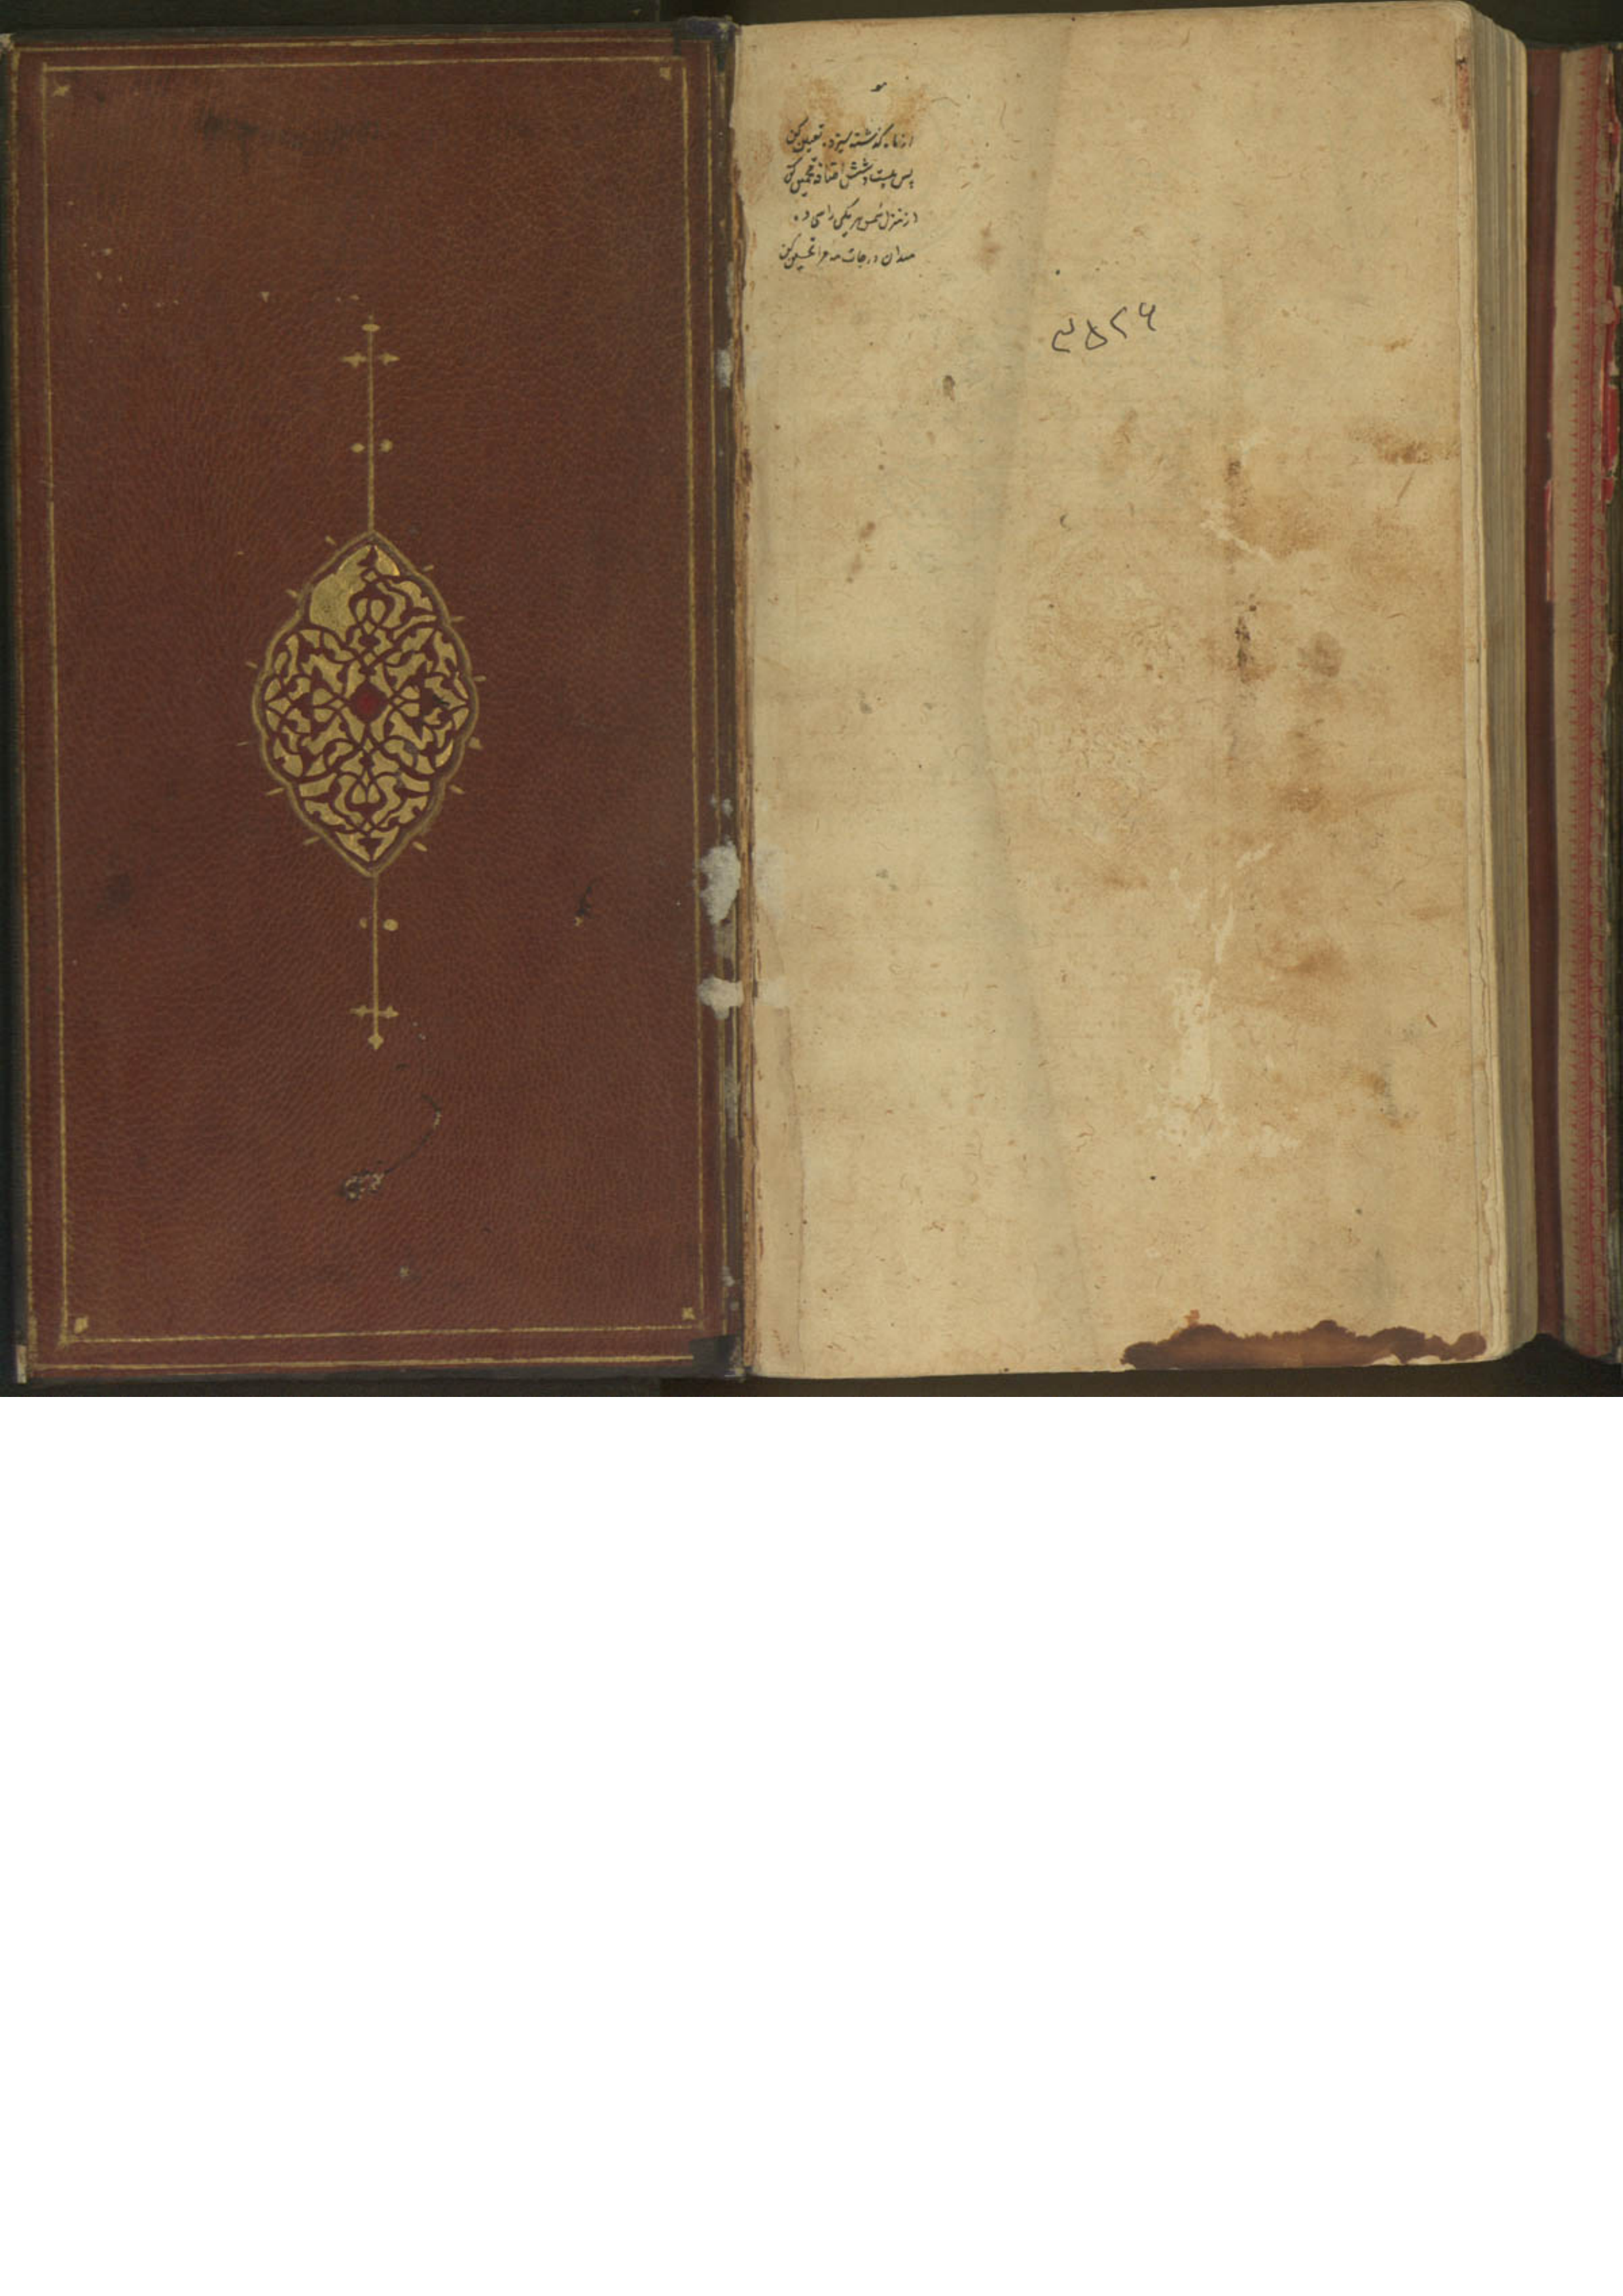 هو
از ماه گذشته سیزده تعیین کن
پس بیست و شش اضافه تخمین کن
از منزل شمس هر یکی را سی ده
میدان درجات ماه را تحسین کن
۳۵۲۶